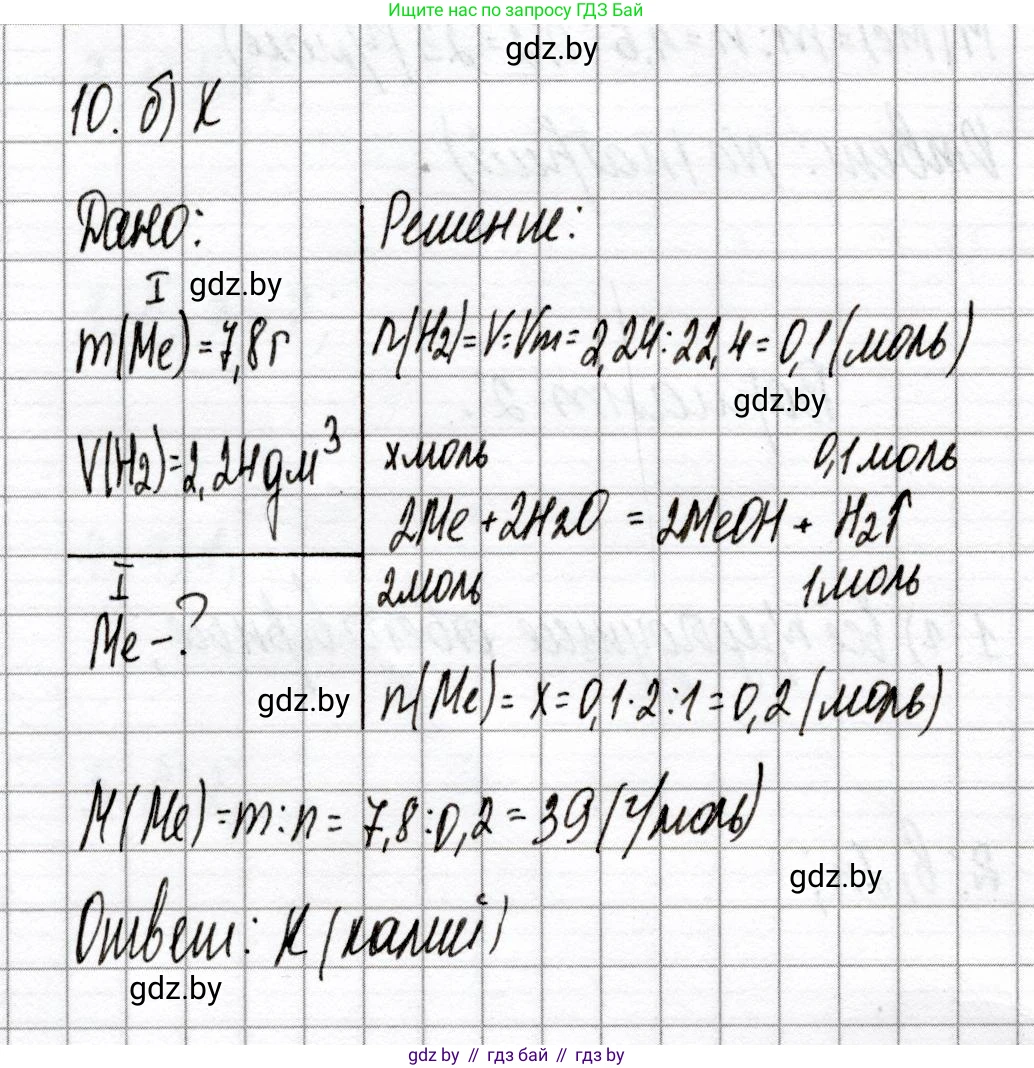 Ищите нас по запросу ГДЗ Бай
gdz.by
10. б) K
Дано:
I
gdz.by
m(Me) = 7,8 г
V(H2) = 2,24 дм³
I
Me - ?
Решение:
n(H2) = V : Vm = 2,24 : 22,4 = 0,1 (моль)
gdz.by
x моль 0,1 моль
2Me + 2H2O = 2MeOH + H2↑
2 моль 1 моль
gdz.by
n(Me) = x = 0,1 · 2 : 1 = 0,2 (моль)
M(Me) = m : n = 7,8 : 0,2 = 39 (г/моль)
gdz.by
Ответ: K (калий)
gdz.by
gdz by // гдз бай // гдз by